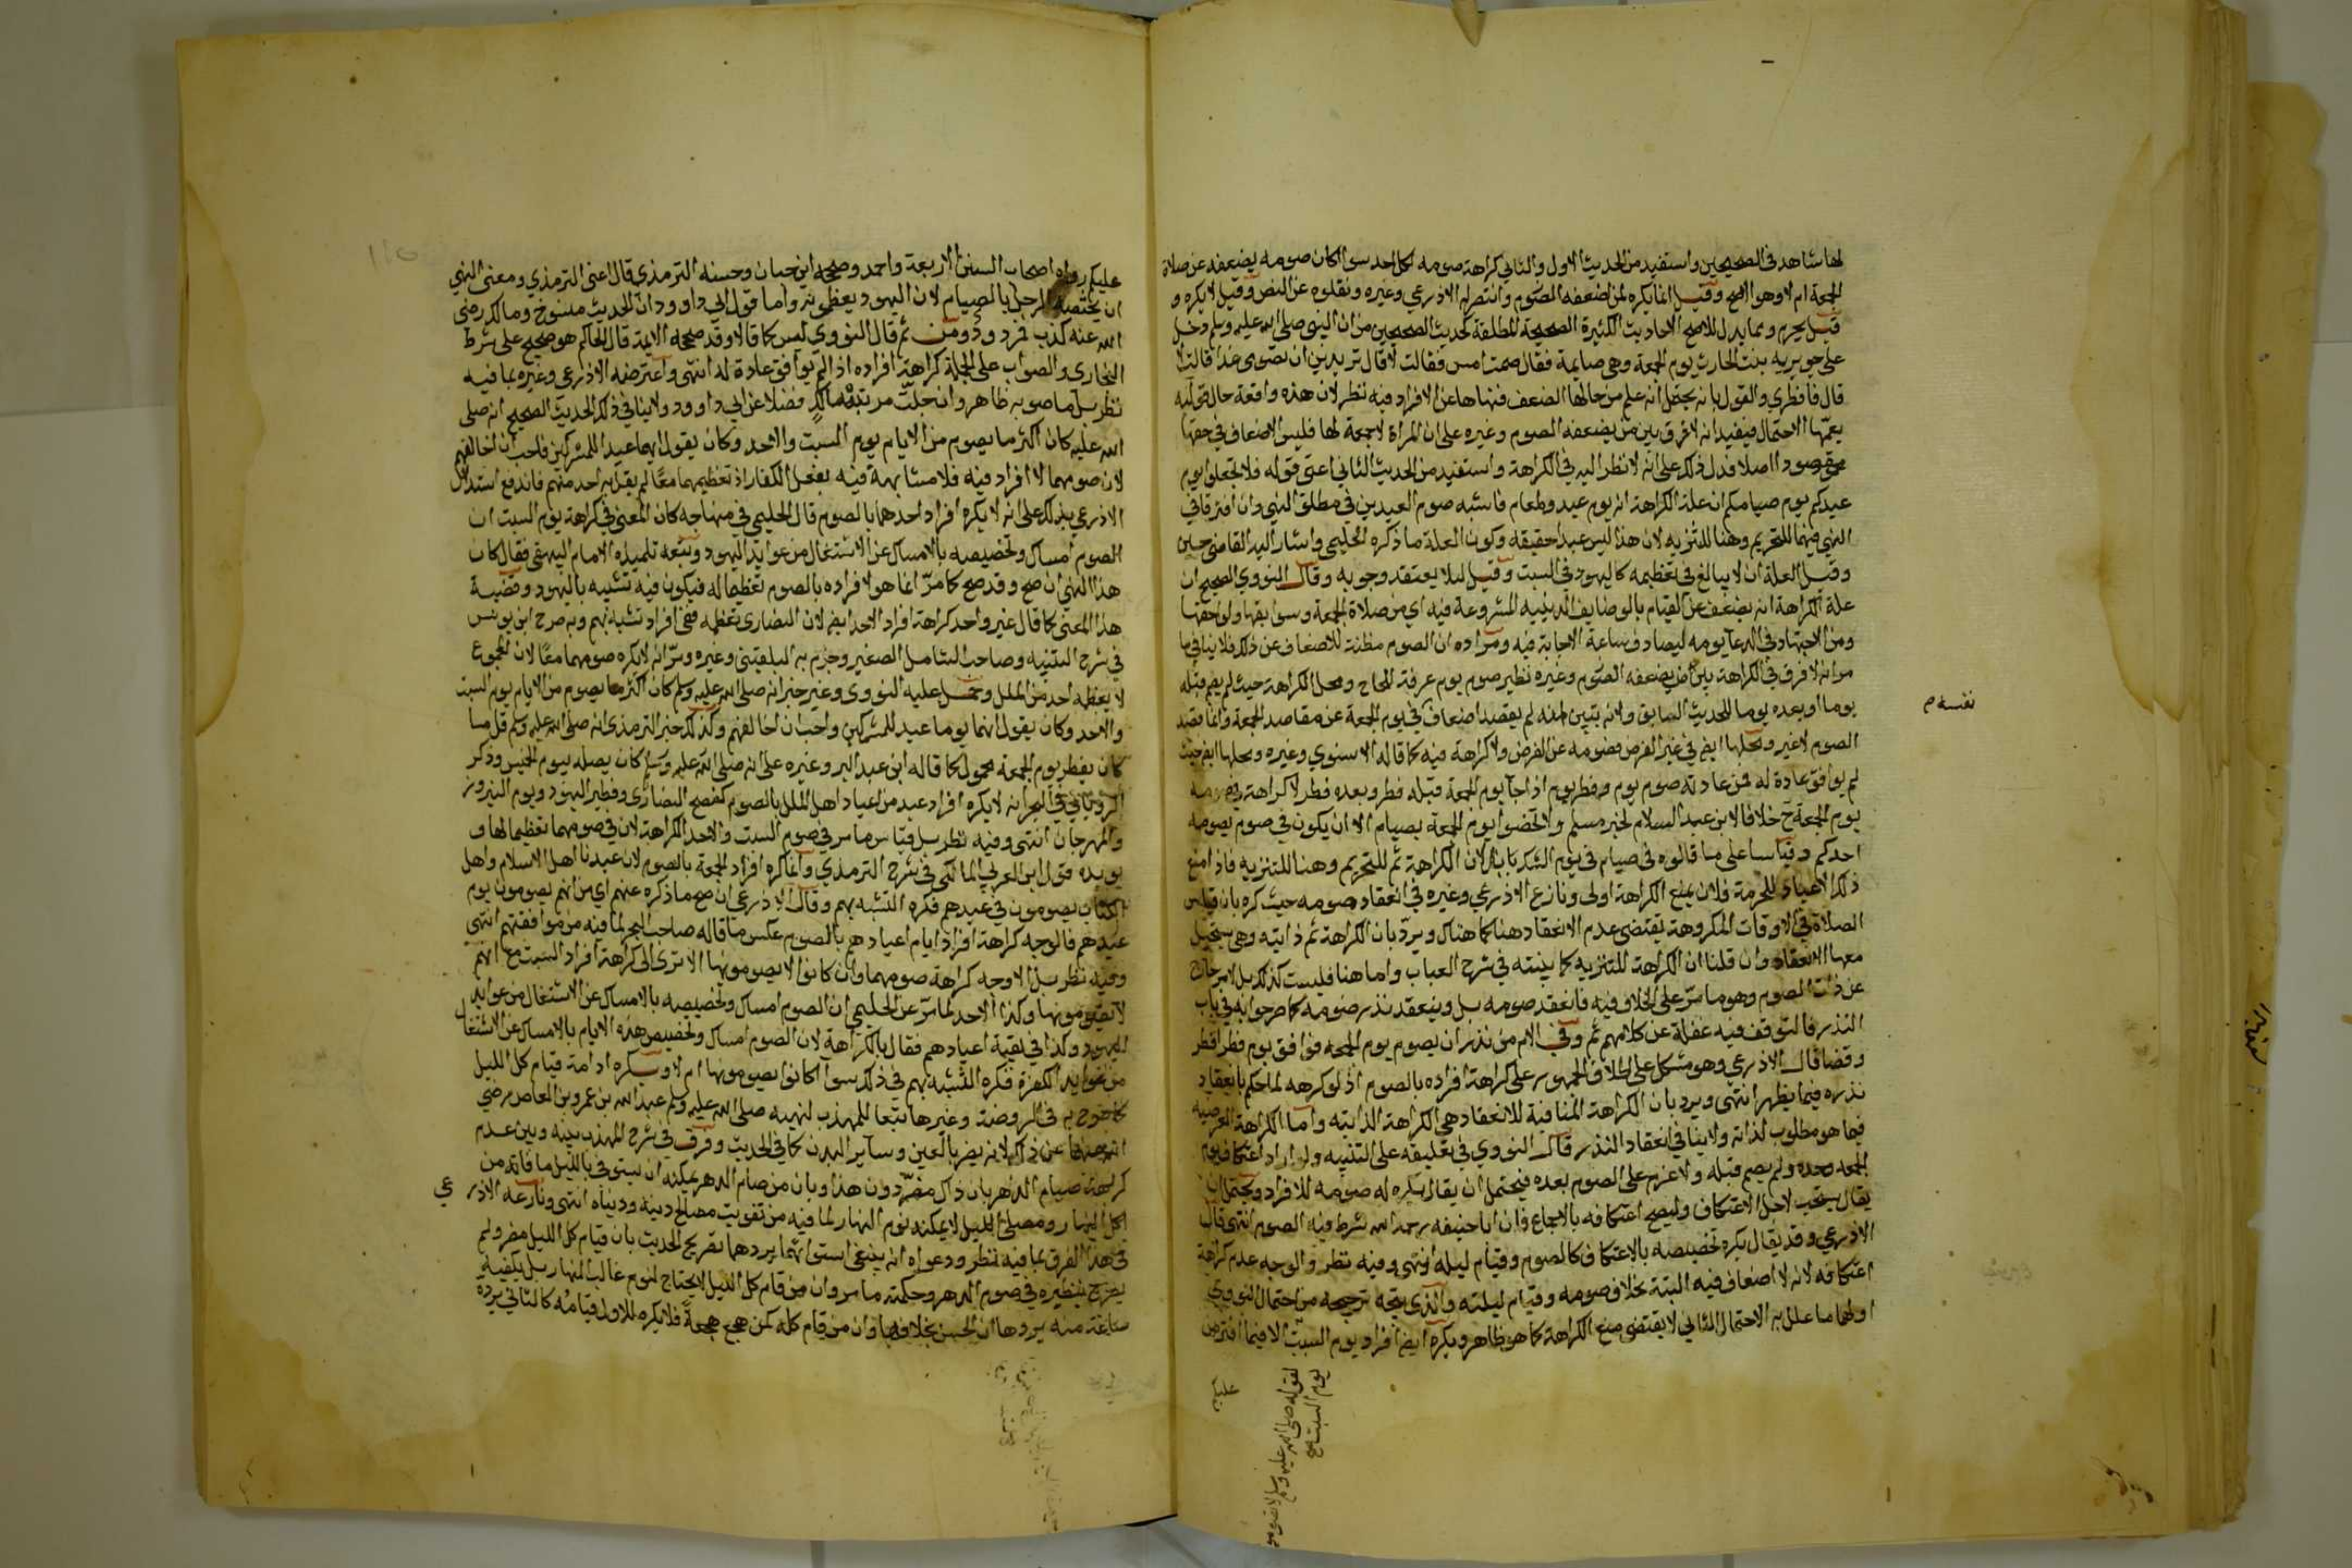 لها شاهد في الصحيحين واستفيد من الحديث الاول والثاني كراهة صومه لكل احد سوا كان صومه يضعفه عن صلاة
الجمعة ام لا وهو الاصح وقيل انما يكره لمن اضعفه الصوم وانتصر له الاذرعي وغيره ونقلوه عن النص وقيل لا يكره و
قيل يحرم ومما يدل للاصح الاحاديث الكثيرة الصحيحة المطلقة كحديث الصحيحين من ان النبي صلى الله عليه وسلم دخل
على جويريه بنت الحارث يوم الجمعة وهي صايمة فقال صمت امس فقالت لا قال تريدين ان تصومي غدا قالت لا
قال فافطري والقول بانه يحتمل انه علم من حالها الضعف فنهاها عن الافراد فيه نظر لان هذه واقعة حال قوليه
يعمها الاحتمال فيفيد انه لا فرق بين من يضعفه الصوم وغيره على ان المراة لا جمعة لها فليس الاضعاف في حقها
مقصودا اصلا فدل ذلك على انه لا نظر اليه في الكراهة واستفيد من الحديث الثاني اعني قوله فلا تجعلوا يوم
عيدكم يوم صيامكم ان علة الكراهة انه يوم عيد وطعام فاشبه صوم العيدين في مطلق النهي وان افترقا في
النهي فيهما للتحريم وهنا للتنزيه لان هذا ليس عيدا حقيقه وكون العلة ما ذكره الحليمي واشار اليه القاضي حسين
وقيل العلة ان لا يبالغ في تعظيمه كاليهود في السبت وقيل ليلا يعتقد وجوبه وقال النووي الصحيح ان
علة الكراهة انه يضعف عن القيام بالوضايف الدينيه المشروعة فيه اي من صلاة الجمعة وسوابقها ولواحقها
ومن الاجتهاد في الدعا يومه ليصادف ساعة الاجابة فيه ومراده ان الصوم مظنة للاضعاف عن ذلك فلا ينافي ما
مر انه لا فرق في الكراهة بين من يضعفه الصوم وغيره نظير صوم يوم عرفة للحاج ومحل الكراهة حيث لم يصم قبله
يوما او بعده يوما للحديث السابق ولانه يتبين انه لم يقصد اضعاف في يوم الجمعة عن مقاصد الجمعة وانما قصد
نفسه م
الصوم لا غير ومحلها ايضا في غير الفرض فصومه عن الفرض لا كراهة فيه كما قاله الاسنوي وغيره ومحلها ايضا حيث
لم يوافق عادة له فمن عادته صوم يوم وفطر يوم اذا جا يوم الجمعة قبله فطر وبعده فطر لا كراهة في صومه
يوم الجمعة ح خلافا لابن عبد السلام لخبر مسلم ولا تخصوا يوم الجمعة بصيام الا ان يكون في صوم يصومه
احدكم وقياسا على ما قالوه في صيام في يوم الشك بل لان الكراهة ثم للتحريم وهنا للتنزيه فاذا منع
ذلك الاعتياد للحرمة فلان يمنع الكراهة اولى ونازع الاذرعي وغيره في انعقاد صومه حيث كره بان قياس
الصلاة في الاوقات المكروهة يقتضي عدم الانعقاد هنا كما هناك ويرد بان الكراهة ثم ذاتيه وهي يستحيل
معها الانعقاد وان قلنا ان الكراهة للتنزيه كما بينته في شرح العباب واما هنا فليست كذلك بل لامر خارج
عن ذات الصوم وهو ما مر على الخلاف فيه فانعقد صومه بل وينعقد نذر صومه كما صرحوا به في باب
النذر فالتوقف فيه غفلة عن كلامهم ثم وفي الام من نذر ان يصوم يوم الجمعه فوافق يوم فطر افطر
وقضا قال الاذرعي وهو مشكل على اطلاق الجمهور على كراهة افراده بالصوم اذ لو كرهه لما حكم بانعقاد
نذره فيما يظهر انتهى ويرد بان الكراهة المنافية للانعقاد هي الكراهة الذاتيه واما الكراهة العرضيه
فيما هو مطلوب لذاته ولا ينافي انعقاد النذر قال النووي في تعليقه على التنبيه ولو اراد اعتكاف يوم
الجمعه وحده ولم يصم قبله ولا عزم على الصوم بعده فيحتمل ان يقال يكره له صومه للافراد ويحتمل ان
يقال يستحب لاجل الاعتكاف وليصح اعتكافه بالاجماع فان ابا حنيفه رحمه الله شرط فيه الصوم انتهى قال
الاذرعي وقد يقال يكره تخصيصه بالاعتكاف كالصوم وقيام ليله انتهى وفيه نظر والوجه عدم كراهة
اعتكافه لانه لا اضعاف فيه البتة بخلاف صومه وقيام ليلته والذي يتجه ترجيحه من احتمال النووي
اولهما ما علل به الاحتمال الثاني لا يقتضي منع الكراهة كما هو ظاهر ويكره ايضا افراد يوم السبت الا فيما افترض
لقوله صلى الله عليه وسلم لا تصوموا
يوم السبت صح
عليكم
عليكم رواه اصحاب السنن الاربعة واحمد وصححه ابن حبان وحسنه الترمذي قال اعني الترمذي ومعنى النهي
ان يختصه الرجل بالصيام لان اليهود يعظمونه واما قول ابي داوود ان الحديث منسوخ ومالك رضي
الله عنه كذب فمردود ومن ثم قال النووي ليس كما قالا وقد صححه الايمة قال الحاكم هو صحيح على شرط
البخاري والصواب على الجملة كراهة افراده اذا لم يوافق عادة له انتهى واعترضه الاذرعي وغيره بما فيه
نظر بل ما صوبه ظاهر وان جلت مرتبة مالك فضلا عن ابي داوود ولا ينافي ذلك الحديث الصحيح انه صلى
الله عليه كان اكثر ما يصوم من الايام يوم السبت والاحد وكان يقول انهما عيدا للمشركين فاحب ان اخالفهم
لان صومهما لا افراد فيه فلا مشابهة فيه بفعل الكفار اذ تعظيمهما معًا لم يقل به احد منهم فاندفع استدلال
الاذرعي بذلك على انه لا يكره افراد احدهما بالصوم قال الحليمي في منهاجه كان المعنى في كراهة يوم السبت ان
الصوم امساك وتخصيصه بالامساك عن الاشتغال من عوايد اليهود وتبعه تلميذه الامام البيهقي فقال كان
هذا النهي ان صح وقد صح كما مر انما هو لافراده بالصوم تعظيما له فيكون فيه تشبيه باليهود وقضية
هذا المعنى كما قال غير واحد كراهة افراد الاحد ايضا لان النصارى تعظمه ففي افراد تشبه بهم وبه صرح ابن يونس
في شرح التنبيه وصاحب الشامل الصغير وجزم به البلقيني وغيره ومر انه لا يكره صومهما معًا لان المجموع
لا يعظمه احد من الملل وحمل عليه النووي وغيره خبر انه صلى الله عليه وسلم كان اكثر ما يصوم من الايام يوم السبت
والاحد وكان يقول انهما يوما عيد للمشركين واحب ان اخالفهم وكذلك خبر الترمذي انه صلى الله عليه وسلم قل ما
كان يفطر يوم الجمعة محمول كما قاله ابن عبد البر وغيره على انه صلى الله عليه وسلم كان يصله بيوم الخميس وذكر
الروياني في البحر انه لا يكره افراد عيد من اعياد اهل الملل بالصوم كفصح النصارى وفطير اليهود ويوم النيروز
والمهرجان انتهى وفيه نظر بل قياس ما مر في صوم السبت والاحد الكراهة لان في صومهما تعظيما لها و
يويده قول ابن العربي المالكي في شرح الترمذي وانما كره افراد الجمعة بالصوم لان عيدنا اهل الاسلام واهل
الكتاب يصومون في عيدهم فكره التشبه بهم وقال الاذرعي ان صح ما ذكره عنهم اي من انهم يصومون يوم
عيدهم فالوجه كراهة افراد ايام اعيادهم بالصوم عكس ما قاله صاحب البحر لما فيه من موافقتهم انتهى
وفيه نظر بل الاوجه كراهة صومهما وان كانوا لا يصومونها الا ترى الى كراهة افراد السبت مع انهم
لا يصومونها وكذا الاحد لما مر عن الحليمي ان الصوم امساك وتخصيصه بالامساك عن الاشتغال من عوايد
اليهود وكذا في بقية اعيادهم فقال بالكراهة لان الصوم امساك وتخصيص هذه الايام بالامساك عن الاشتغال
من عوايد الكفرة فكره التشبه بهم في ذلك سوا كانوا يصومونها ام لا ويكره ادامة قيام كل الليل
كما صرح به في الروضة وغيرها تبعا للمهذب لنهيه صلى الله عليه وسلم عبد الله بن عمرو بن العاص رضي
الله عنهما عن ذلك لانه يضر بالعين وساير البدن كما في الحديث وفرق في شرح المهذب بينه وبين عدم
كراهة صيام الدهر بان ذاك مضر دون هذا وبان من صام الدهر يمكنه ان يستوفي بالليل ما فاته من
اكل النهار ومصلي الليل لا يمكنه نوم النهار لما فيه من تفويت مصالح دينه ودنياه انتهى ونازعه الاذرعي
في هذا الفرق بما فيه نظر ودعواه انه ينبغي استوائهما يردها تصريح الحديث بان قيام كل الليل مضر ولم
يصرح بنظيره في صوم الدهر وحكمته ما مر وان من قام كل الليل لا يحتاج لنوم غالب النهار بل يكفيه
ساعة منه يردها ان الحس بخلافها وان من قام كله كمن هجع هجعةً فلا يكره للاول قيامه كالثاني يرده